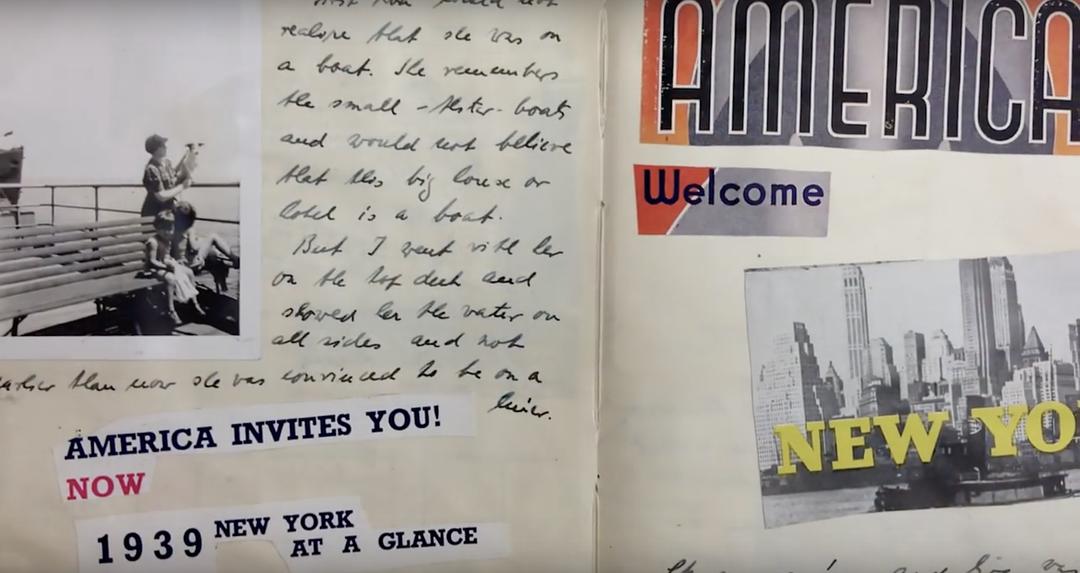 would not
realise that she was on
a boat. She remembers
the small - Alster - boats
and would not believe
that this big house or
hotel is a boat.
But I went with her
on the top deck and
showed her the water on
all sides and not
earlier than now she was convinced to be on a
liner.
AMERICA INVITES YOU!
NOW
1939 NEW YORK
AT A GLANCE
AMERICA
Welcome
NEW YO